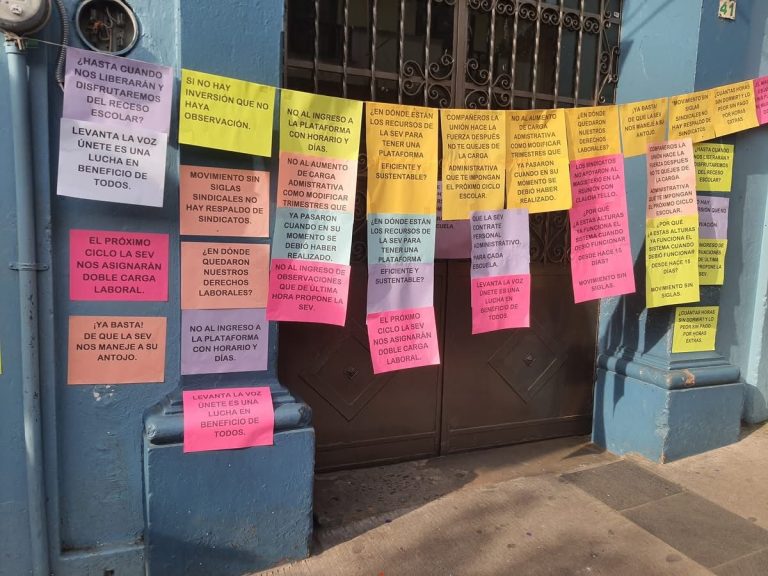 ¿HASTA CUANDO
NOS LIBERARÁN Y
DISFRUTAREMOS
DEL RECESO
ESCOLAR?
LEVANTA LA VOZ
ÚNETE ES UNA
LUCHA EN
BENEFICIO DE
TODOS.
EL PRÓXIMO
CICLO LA SEV
NOS ASIGNARÁN
DOBLE CARGA
LABORAL.
¡YA BASTA!
DE QUE LA SEV
NOS MANEJE A SU
ANTOJO.
SI NO HAY
INVERSIÓN QUE NO
HAYA
OBSERVACIÓN.
MOVIMIENTO SIN
SIGLAS
SINDICALES NO
HAY RESPALDO DE
SINDICATOS.
¿EN DÓNDE
QUEDARON
NUESTROS
DERECHOS
LABORALES?
NO AL INGRESO A
LA PLATAFORMA
CON HORARIO Y
DÍAS.
LEVANTA LA VOZ
ÚNETE ES UNA
LUCHA EN
BENEFICIO DE
TODOS.
NO AL INGRESO A
LA PLATAFORMA
CON HORARIO Y
DÍAS.
NO AL AUMENTO DE
CARGA
ADMISTRATIVA
COMO MODIFICAR
TRIMESTRES QUE
YA PASARON
CUANDO EN SU
MOMENTO SE
DEBIÓ HABER
REALIZADO.
NO AL INGRESO DE
OBSERVACIONES
QUE DE ÚLTIMA
HORA PROPONE LA
SEV.
¿EN DÓNDE ESTÁN
LOS RECURSOS
DE LA SEV PARA
TENER UNA
PLATAFORMA
EFICIENTE Y
SUSTENTABLE?
¿EN DÓNDE ESTÁN
LOS RECURSOS
DE LA SEV PARA
TENER UNA
PLATAFORMA
EFICIENTE Y
SUSTENTABLE?
EL PRÓXIMO
CICLO LA SEV
NOS ASIGNARÁN
DOBLE CARGA
LABORAL.
COMPAÑEROS LA
UNIÓN HACE LA
FUERZA DESPUÉS
NO TE QUEJES DE
LA CARGA
ADMINISTRATIVA
QUE TE IMPONGAN
EL PRÓXIMO CICLO
ESCOLAR.
QUE LA SEV
CONTRATE
PERSONAL
ADMINISTRATIVO.
PARA CADA
ESCUELA.
LEVANTA LA VOZ
ÚNETE ES UNA
LUCHA EN
BENEFICIO DE
TODOS.
NO AL AUMENTO DE
CARGA
ADMISTRATIVA
COMO MODIFICAR
TRIMESTRES QUE
YA PASARON
CUANDO EN SU
MOMENTO SE
DEBIÓ HABER
REALIZADO.
¿EN DÓNDE
QUEDARON
NUESTROS
DERECHOS
LABORALES?
LOS SINDICATOS
AL MAGISTERIO EN
LA REUNIÓN CON
CLAUDIA TELLO.
¿POR QUÉ
A ESTAS ALTURAS
YA FUNCIONA EL
SISTEMA CUANDO
DEBIÓ FUNCIONAR
DESDE HACE 15
DÍAS?
MOVIMIENTO SIN
SIGLAS.
¡YA BASTA!
DE QUE LA SEV
NOS MANEJE A SU
ANTOJO.
MOVIMIENTO SIN
SIGLAS
SINDICALES NO
HAY RESPALDO DE
SINDICATOS.
COMPAÑEROS LA
UNIÓN HACE LA
FUERZA DESPUÉS
NO TE QUEJES
DE LA CARGA
ADMINISTRATIVA
QUE TE IMPONGAN
EL PRÓXIMO CICLO
ESCOLAR.
¿POR QUÉ
A ESTAS ALTURAS
YA FUNCIONA EL
SISTEMA CUANDO
DEBIÓ FUNCIONAR
DESDE HACE 15
DÍAS?
MOVIMIENTO SIN
SIGLAS.
¿CUÁNTAS HORAS
SIN DORMIR? Y LO
PEOR SIN PAGO
POR HORAS
EXTRAS.
¿CUÁNTAS HORAS
SIN DORMIR? Y LO
PEOR SIN PAGO DE
HORAS EXTRAS.
41